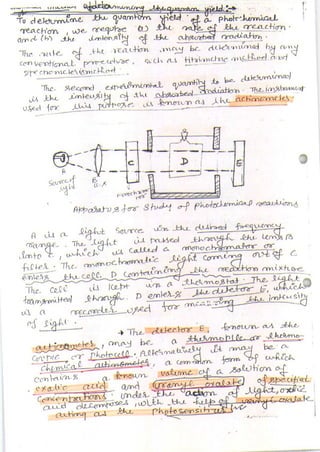 of determining the quantum yield :-
To determine the quantum yield of a photochemical
reaction, we require (a) the rate of the reaction
and (b) the intensity of the absorbed radiation.
The rate of the reaction may be determined by any
conventional procedure, such as titrimetric method and
method.
The second experimental quantity to be determined
is the intensity of the absorbed radiation. The instrument
used for this purpose is known as the actinometer
A
B
C
D
E
Source of
light
Thermostat
Apparatus for Study of Photochemical reactions
A is a light source in the desired frequency
range. The light is passed through the lens B
into C, which is called a monochromator or
filter. The monochromatic light coming out of C
enters the cell D containing the reaction mixture
The cell is kept in a thermostat. The light
transmitted through D enters the detector E, which
is a recorder used for measuring the intensity
of light.
→ The detector E, known as the
actinometer, may be a thermopile or thermo-
couple or Photocell. Alternatively it may be a
chemical actinometer, a common form of which
contains a known volume of a solution of
oxalic acid and uranyl oxalate of specified
concentrations under the action of light, oxalic
acid decomposes, with the help of uranyl oxalate
acting as the photosensitizer